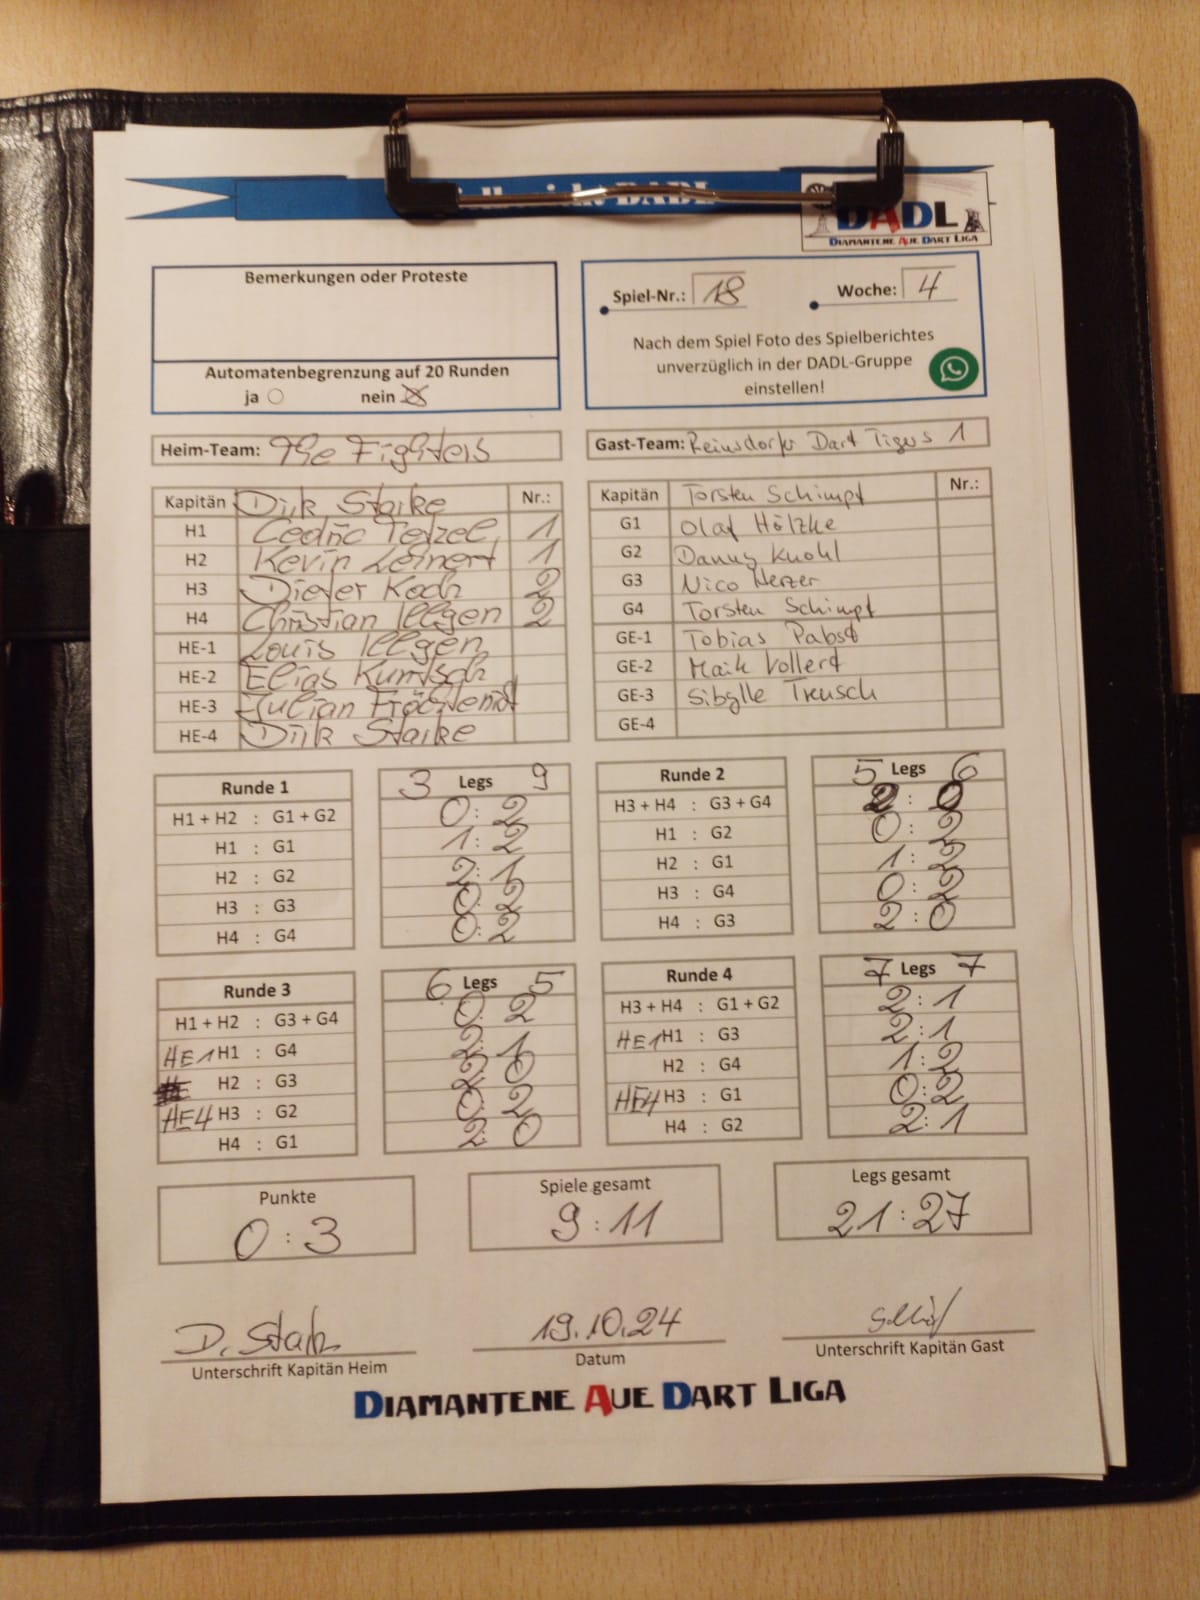 DADL
DADL
DIAMANTENE AUE DART LIGA
Bemerkungen oder Proteste
Automatenbegrenzung auf 20 Runden
ja nein
Spiel-Nr.: 18 Woche: 4
Nach dem Spiel Foto des Spielberichtes
unverzüglich in der DADL-Gruppe
einstellen!
Heim-Team: The Fighters
Gast-Team: Reinsdorfer Dart Tigers 1
Kapitän Dirk Starke Nr.:
H1 Cedric Tetzel 1
H2 Kevin Leinert 1
H3 Dieter Koch 2
H4 Christian Illgen 2
HE-1 Louis Illgen
HE-2 Elias
HE-3 Julian
HE-4 Dirk Starke
Kapitän Torsten Schimpf Nr.:
G1 Olaf Hölzke
G2 Danny Knohl
G3 Nico Herzer
G4 Torsten Schimpf
GE-1 Tobias Pabst
GE-2 Maik Vollert
GE-3 Sibylle Treusch
GE-4
Runde 1 3 Legs 9
H1 + H2 : G1 + G2 0:2
H1 : G1 1:2
H2 : G2 2:1
H3 : G3 0:2
H4 : G4 0:2
Runde 2 5 Legs 6
H3 + H4 : G3 + G4 2:0
H1 : G2 0:2
H2 : G1 1:2
H3 : G4 0:2
H4 : G3 2:0
Runde 3 6 Legs 5
H1 + H2 : G3 + G4 0:2
HE1 H1 : G4 2:1
H2 : G3 2:0
HE4 H3 : G2 0:2
H4 : G1 2:0
Runde 4 7 Legs 7
H3 + H4 : G1 + G2 2:1
HE1 H1 : G3 2:1
H2 : G4 1:2
HE4 H3 : G1 0:2
H4 : G2 2:1
Punkte
0:3
Spiele gesamt
9:11
Legs gesamt
21:27
D. Starke
Unterschrift Kapitän Heim
19.10.24
Datum
Unterschrift Kapitän Gast
DIAMANTENE AUE DART LIGA